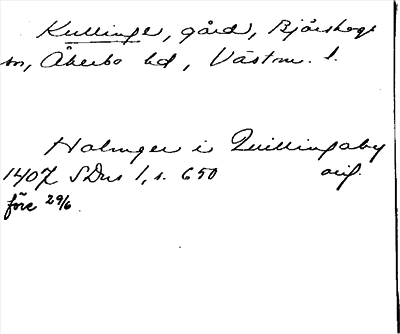 Kullinge, gård, Björskogs
sn, Åkerbo hd, Västm. l.
Holmger i Quillingaby
1407 SDns 1, s. 650 orig.
före 29/6